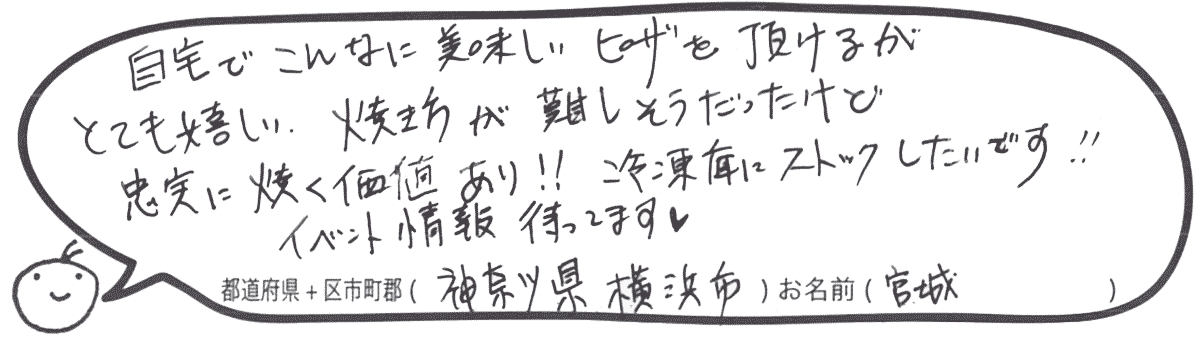 自宅でこんなに美味しいピザを頂けるが
とても嬉しい. 焼き方が難しそうだったけど
忠実に焼く価値あり!! 冷凍庫にストックしたいです!!
イベント情報待ってます♥
都道府県+区市町郡(神奈川県横浜市)お名前(宮城)